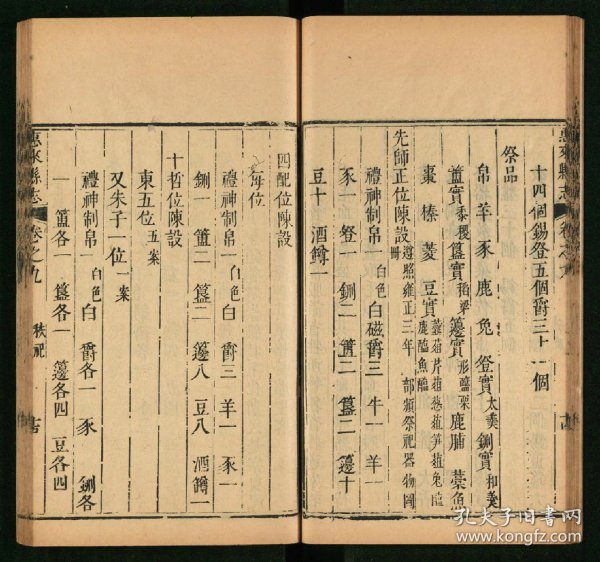 十四個錫登五個爵三十一個
祭品
帛 羊 豕 鹿 兔 登實 太羹 鉶實 和羹
簠實 黍稷 簋實 稻粱 籩實 形鹽 栗 鹿脯 藁魚
棗 榛 菱 豆實 菁菹芹菹葱菹笋菹兔醢鹿醢魚醢
先師正位陳設 遵照雍正三年 部頒祭祀器物圖冊
禮神制帛一 白色 白磁爵三 牛一 羊一
豕一 登一 鉶二 簠二 簋二 籩十
豆十 酒罇一
四配位陳設
每位
禮神制帛一 白色 爵三 羊一 豕一
鉶一 簠二 簋二 籩八 豆八 酒罇一
十哲位陳設
東五位 五案
又朱子一位 一案
禮神制帛一 白色 白爵各一 豕一 鉶各
一 簠各一 簋各一 籩各四 豆各四
惠來縣志 卷之九 秩祀
孔夫子旧书网
www.kongfz.com